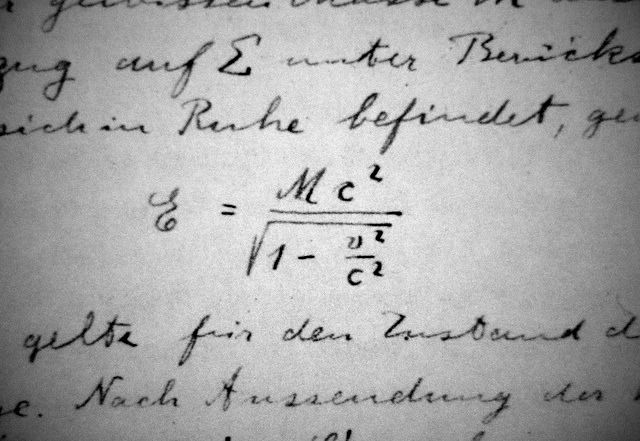 gewissen Masse M
zug auf Σ unter Berücks
sich in Ruhe befindet, gen
E = Mc² / √(1 - v²/c²)
gelte für den Zustand d
se. Nach Aussendung der